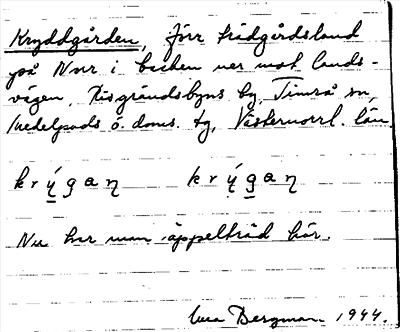 Kryddgården, förr trädgårdsland
på Norr i backen ner mot lands-
vägen. byns by, Timrå sn,
Medelpads ö. doms. tg, Västernorrl. län.
krýgaŋ krýgaŋ
Nu har man äppelträd här.
Bergman 1944.